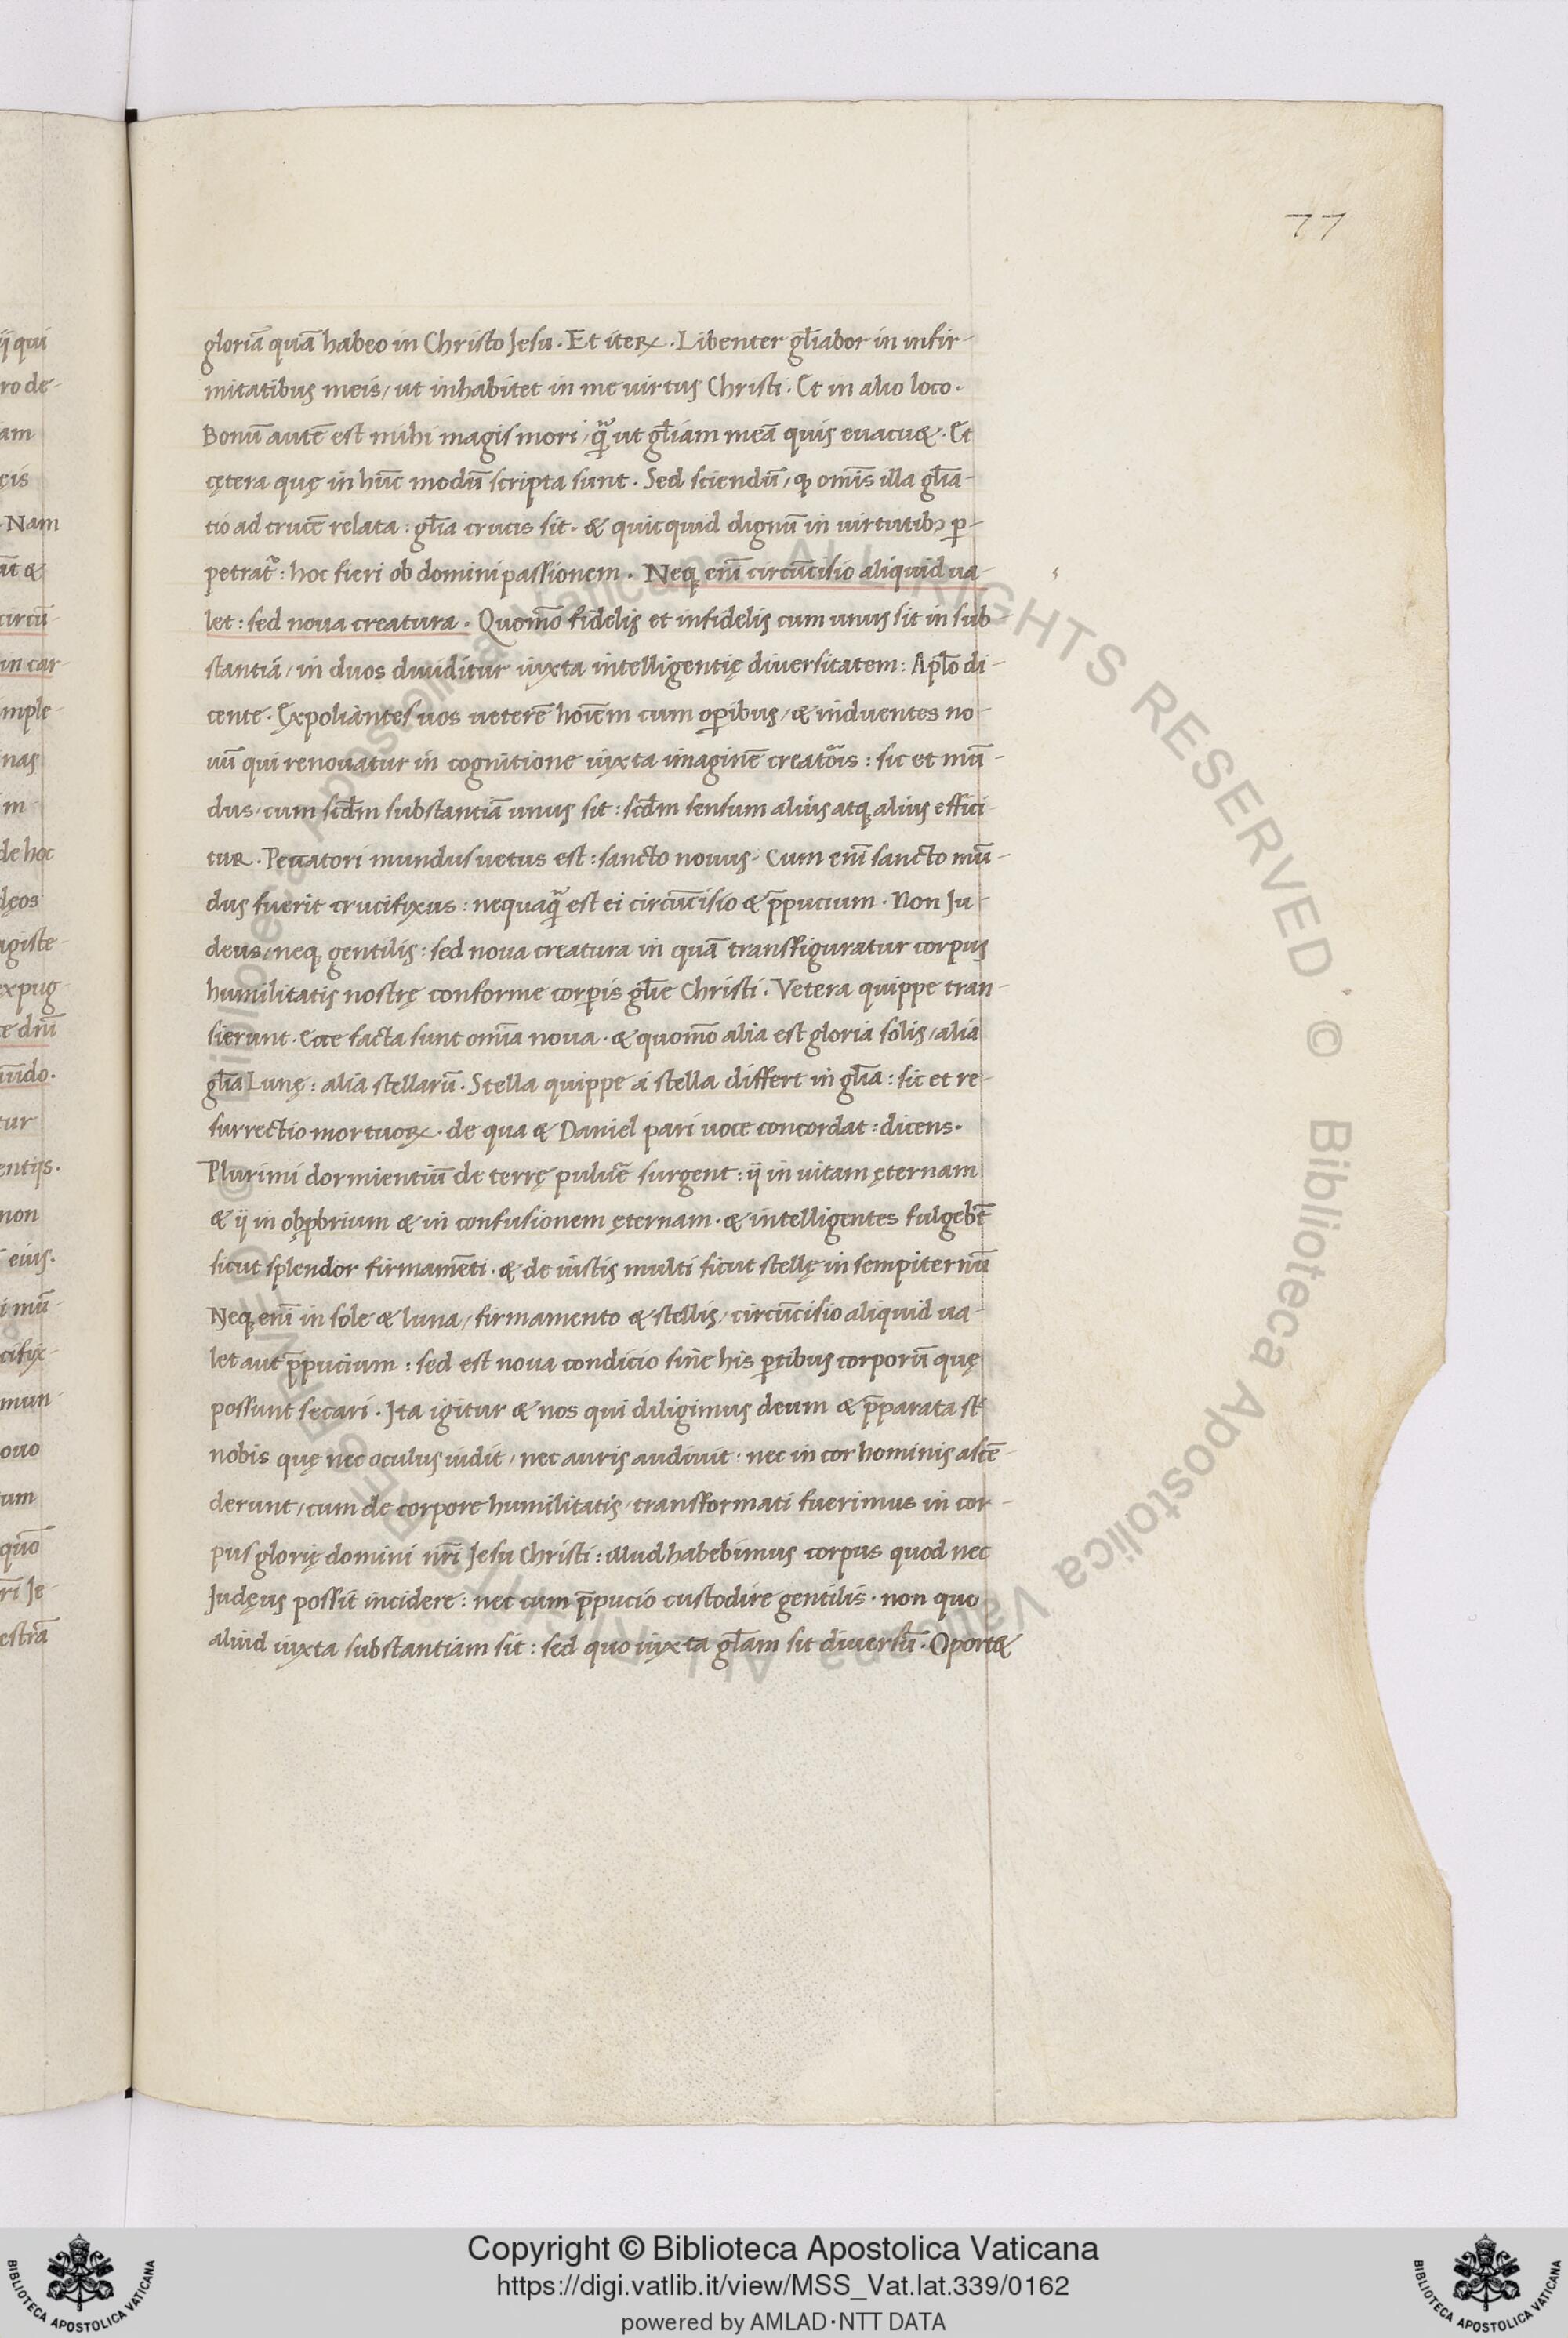 77
gloriā quā habeo in Christo Jesu. Et iterꝝ. Libenter gl̄iabor in infir-
mitatibus meis, ut inhabitet in me uirtus Christi. Et in alio loco.
Bonū autē est mihi magis mori, qꝫ ut gl̄iam meā quis euacuet. Et
cętera quę in hūc modū scripta sunt. Sed sciendū, ꝙ omīs illa gl̄ia-
tio ad crucē relata: gl̄ia crucis sit. & quicquid dignū in uirtutibꝫ ꝑ-
petrat᷑: hoc fieri ob domini passionem. Neqꝫ enī circūcisio aliquid ua-
let: sed noua creatura. Quomō fidelis et infidelis cum unus sit in sub-
stantiā, in duos diuiditur iuxta intelligentię diuersitatem: Apl̄o di-
cente. Expoliantes uos ueterē hoīem cum oꝑibus, & induentes no-
uū qui renouatur in cognitione iuxta imaginē creatoris: sic et mū-
dus, cum scd̄m substantiā unus sit: scd̄m sensum alius atqꝫ alius effici-
tur. Peccatori mundus uetus est: sancto nouus. Cum enī sancto mū-
dus fuerit crucifixus: nequaqꝫ est ei circūcisio & p̄pucium. Non Ju-
deus, neqꝫ gentilis: sed noua creatura in quā transfiguratur corpus
humilitatis nostrę conforme corꝑis gl̄ie Christi. Vetera quippe tran-
sierunt. Ecce facta sunt omīa noua. & quomō alia est gloria solis, alia
gl̄ia Lunę: alia stellarū. Stella quippe a stella differt in gl̄ia: sic et re-
surrectio mortuoꝝ. de qua & Daniel pari uoce concordat: dicens.
Plurimi dormientiū de terrę puluēe surgent: ij in uitam ęternam
& ij in obꝓbrium & in confusionem ęternam. & intelligentes fulgebūt
sicut splendor firmamēti. & de iustis multi sicut stellę in sempiternū
Neqꝫ enī in sole & luna, firmamento & stellis, circūcisio aliquid ua-
let aut p̄pucium: sed est noua condicio sine his ꝑtibus corporū quę
possunt secari. Ita igitur & nos qui diligimus deum & p̄parata st̄
nobis quę nec oculus uidit, nec auris audiuit. nec in cor hominis ascē-
derunt, cum de corpore humilitatis, transformati fuerimus in cor-
pus glorię domini nr̄i Jesu Christi: illud habebimus corpus quod nec
Judęus possit incidere: nec cum p̄pucio custodire gentilis. non quo
aliud iuxta substantiam sit: sed quo iuxta gl̄iam sit diuersū. Oportet
Copyright © Biblioteca Apostolica Vaticana
https://digi.vatlib.it/view/MSS_Vat.lat.339/0162
powered by AMLAD·NTT DATA